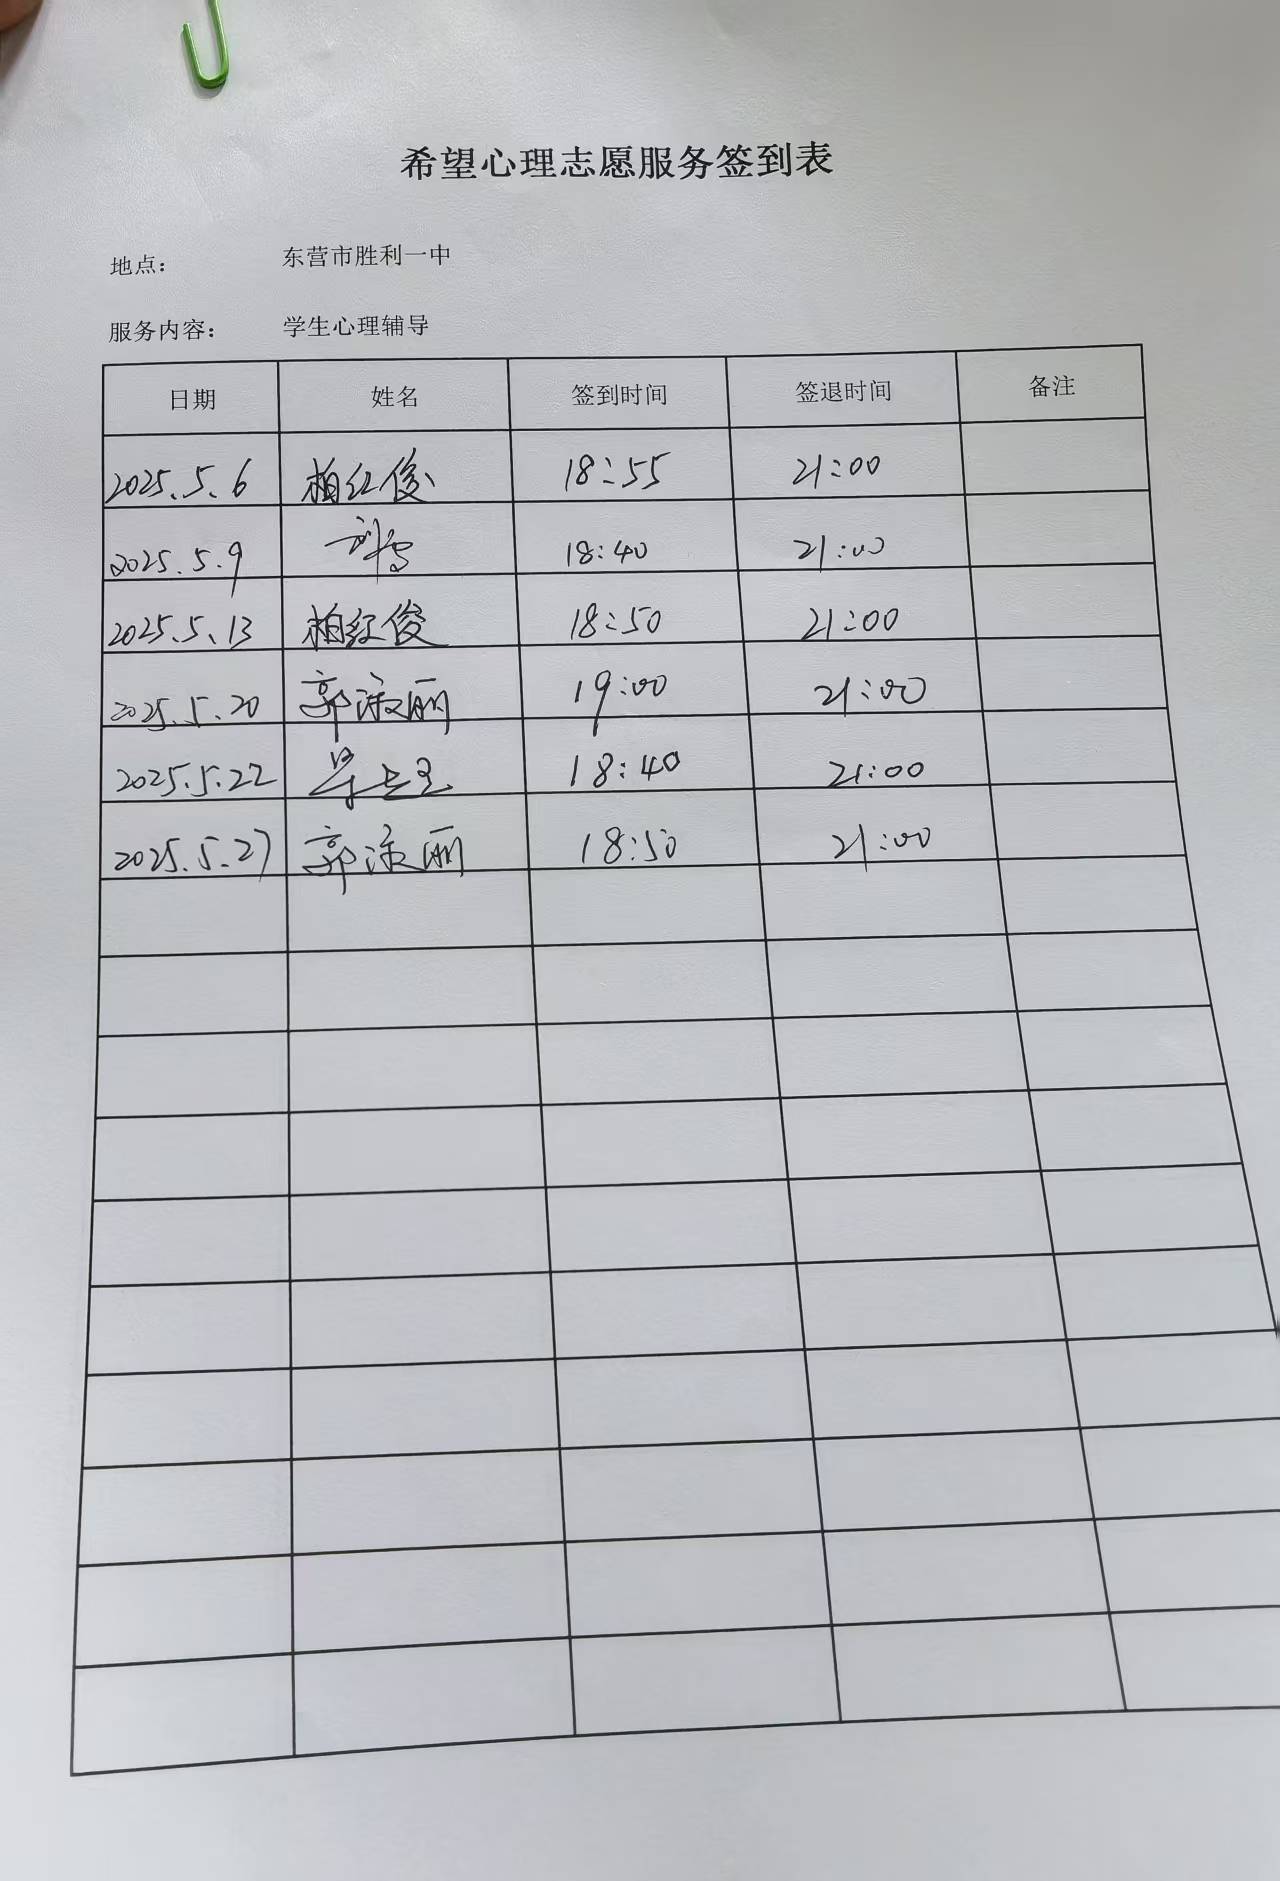 希望心理志愿服务签到表
地点： 东营市胜利一中
服务内容： 学生心理辅导
日期 姓名 签到时间 签退时间 备注
2025.5.6 柏红俊 18:55 21:00
2025.5.9 18:40 21:00
2025.5.13 柏红俊 18:50 21:00
2025.5.20 郭淑丽 19:00 21:00
2025.5.22 18:40 21:00
2025.5.27 郭淑丽 18:50 21:00